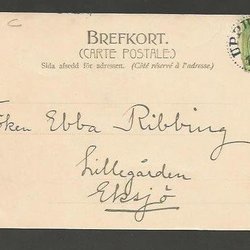 C
BREFKORT.
(CARTE POSTALE.)
Sida afsedd för adressen. (Côté réservé à l'adresse.)
UPP
öken Ebba Ribbing
Lillegården
Eksjö